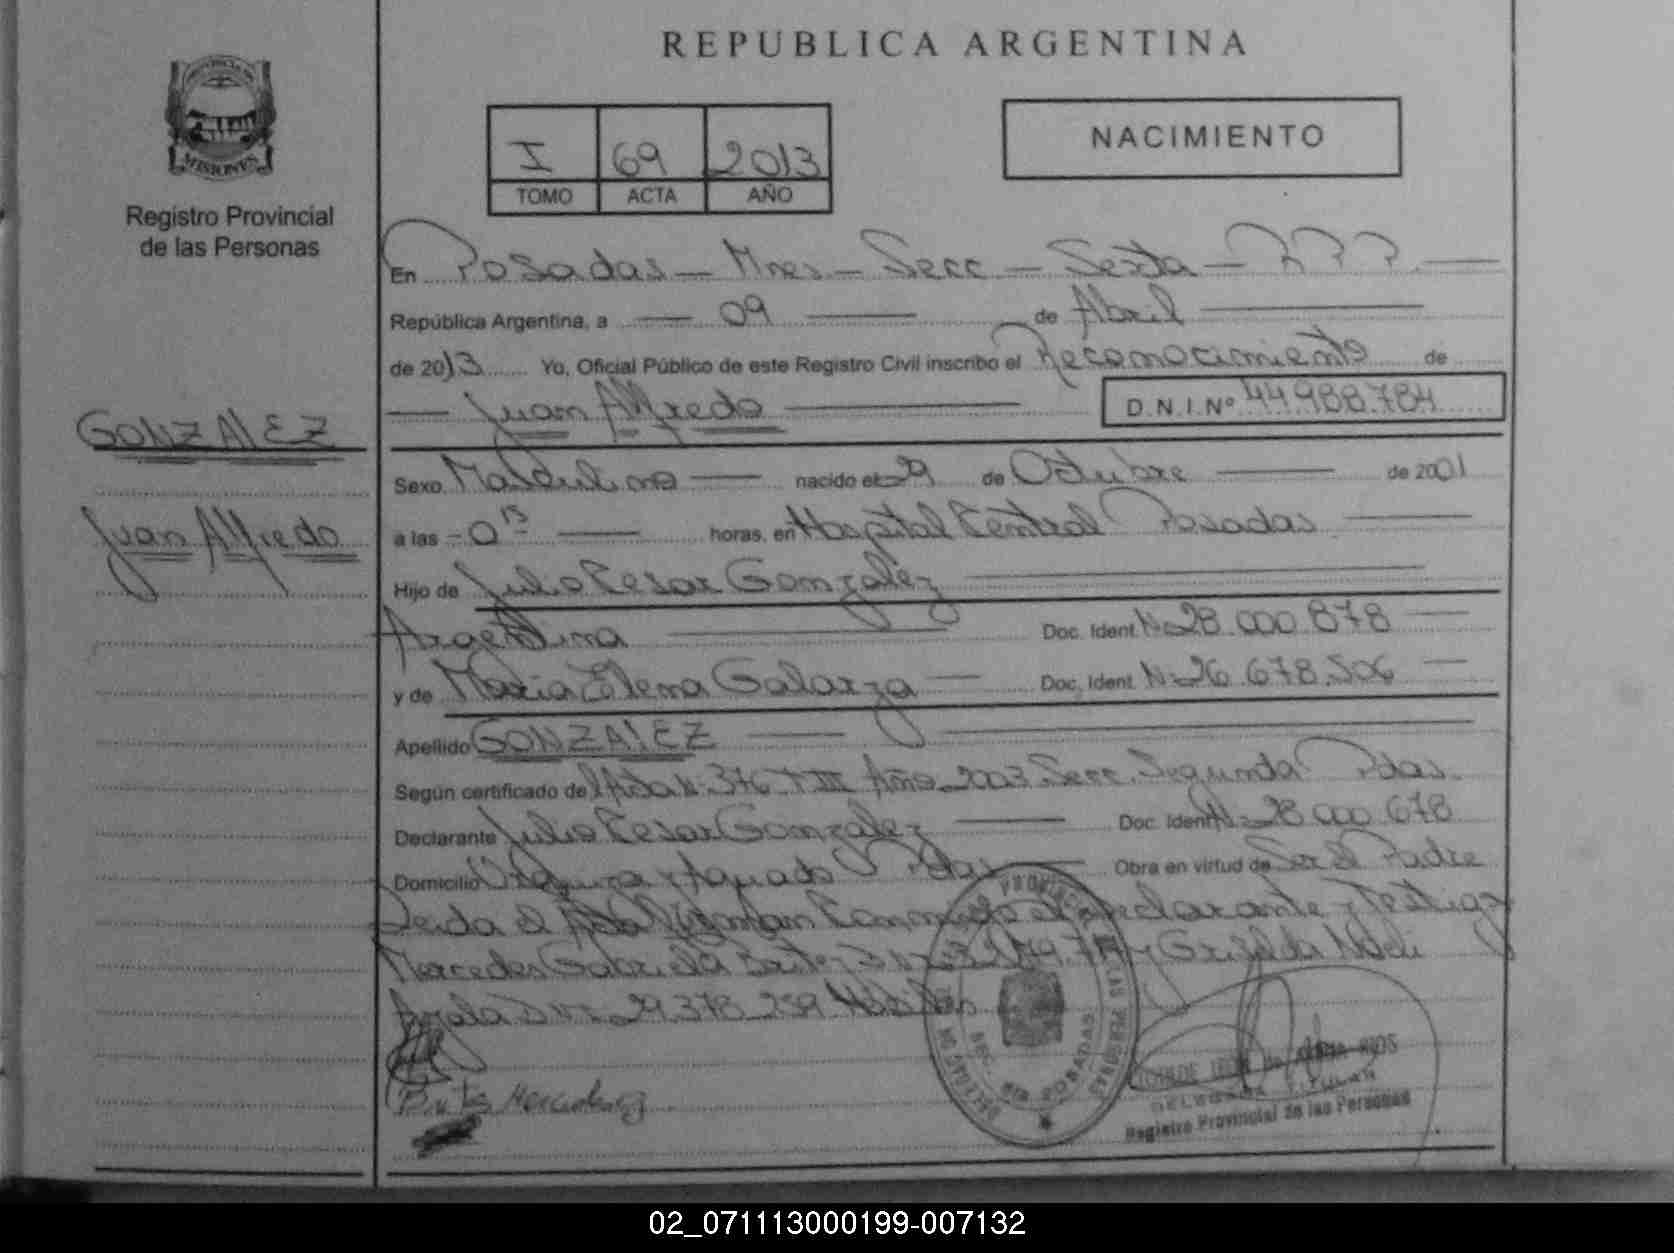 REPUBLICA ARGENTINA
PROVINCIA DE
MISIONES
Registro Provincial
de las Personas
I 69 2013
TOMO ACTA AÑO
NACIMIENTO
En Posadas - Mnes - Secc - Sexta -
República Argentina, a 09 de Abril
de 2013 Yo, Oficial Público de este Registro Civil inscribo el Reconocimiento de
Juan Alfredo D.N.I.Nº 44.988.784
GONZALEZ
Juan Alfredo
Sexo Masculino nacido el 29 de Octubre de 2001
a las 0 15 horas, en Hospital Central Posadas
Hijo de Julio Cesar Gonzalez
Argentina Doc. Ident. Nº 28.000.878
y de Maria Elena Galarza Doc. Ident. Nº 26.678.506
Apellido GONZALEZ
Según certificado del Acta Nº 376 T III Año 2003 Secc. Segunda Pdas.
Declarante Julio Cesar Gonzalez Doc. Ident Nº 28.000.678
Domicilio y Aguado Pdas Obra en virtud de Ser El Padre
Leida el Acta Firman Conmigo el Declarante y Testigos
Mercedes Gabriela Britez y Griselda Noeli
Ayala D N I 29.378.259 Hábiles
DELEGAC
PROVINCIA
LAS PERSONAS
POSADAS
DELEGADA TITULAR
Registro Provincial de las Personas
02_071113000199-007132